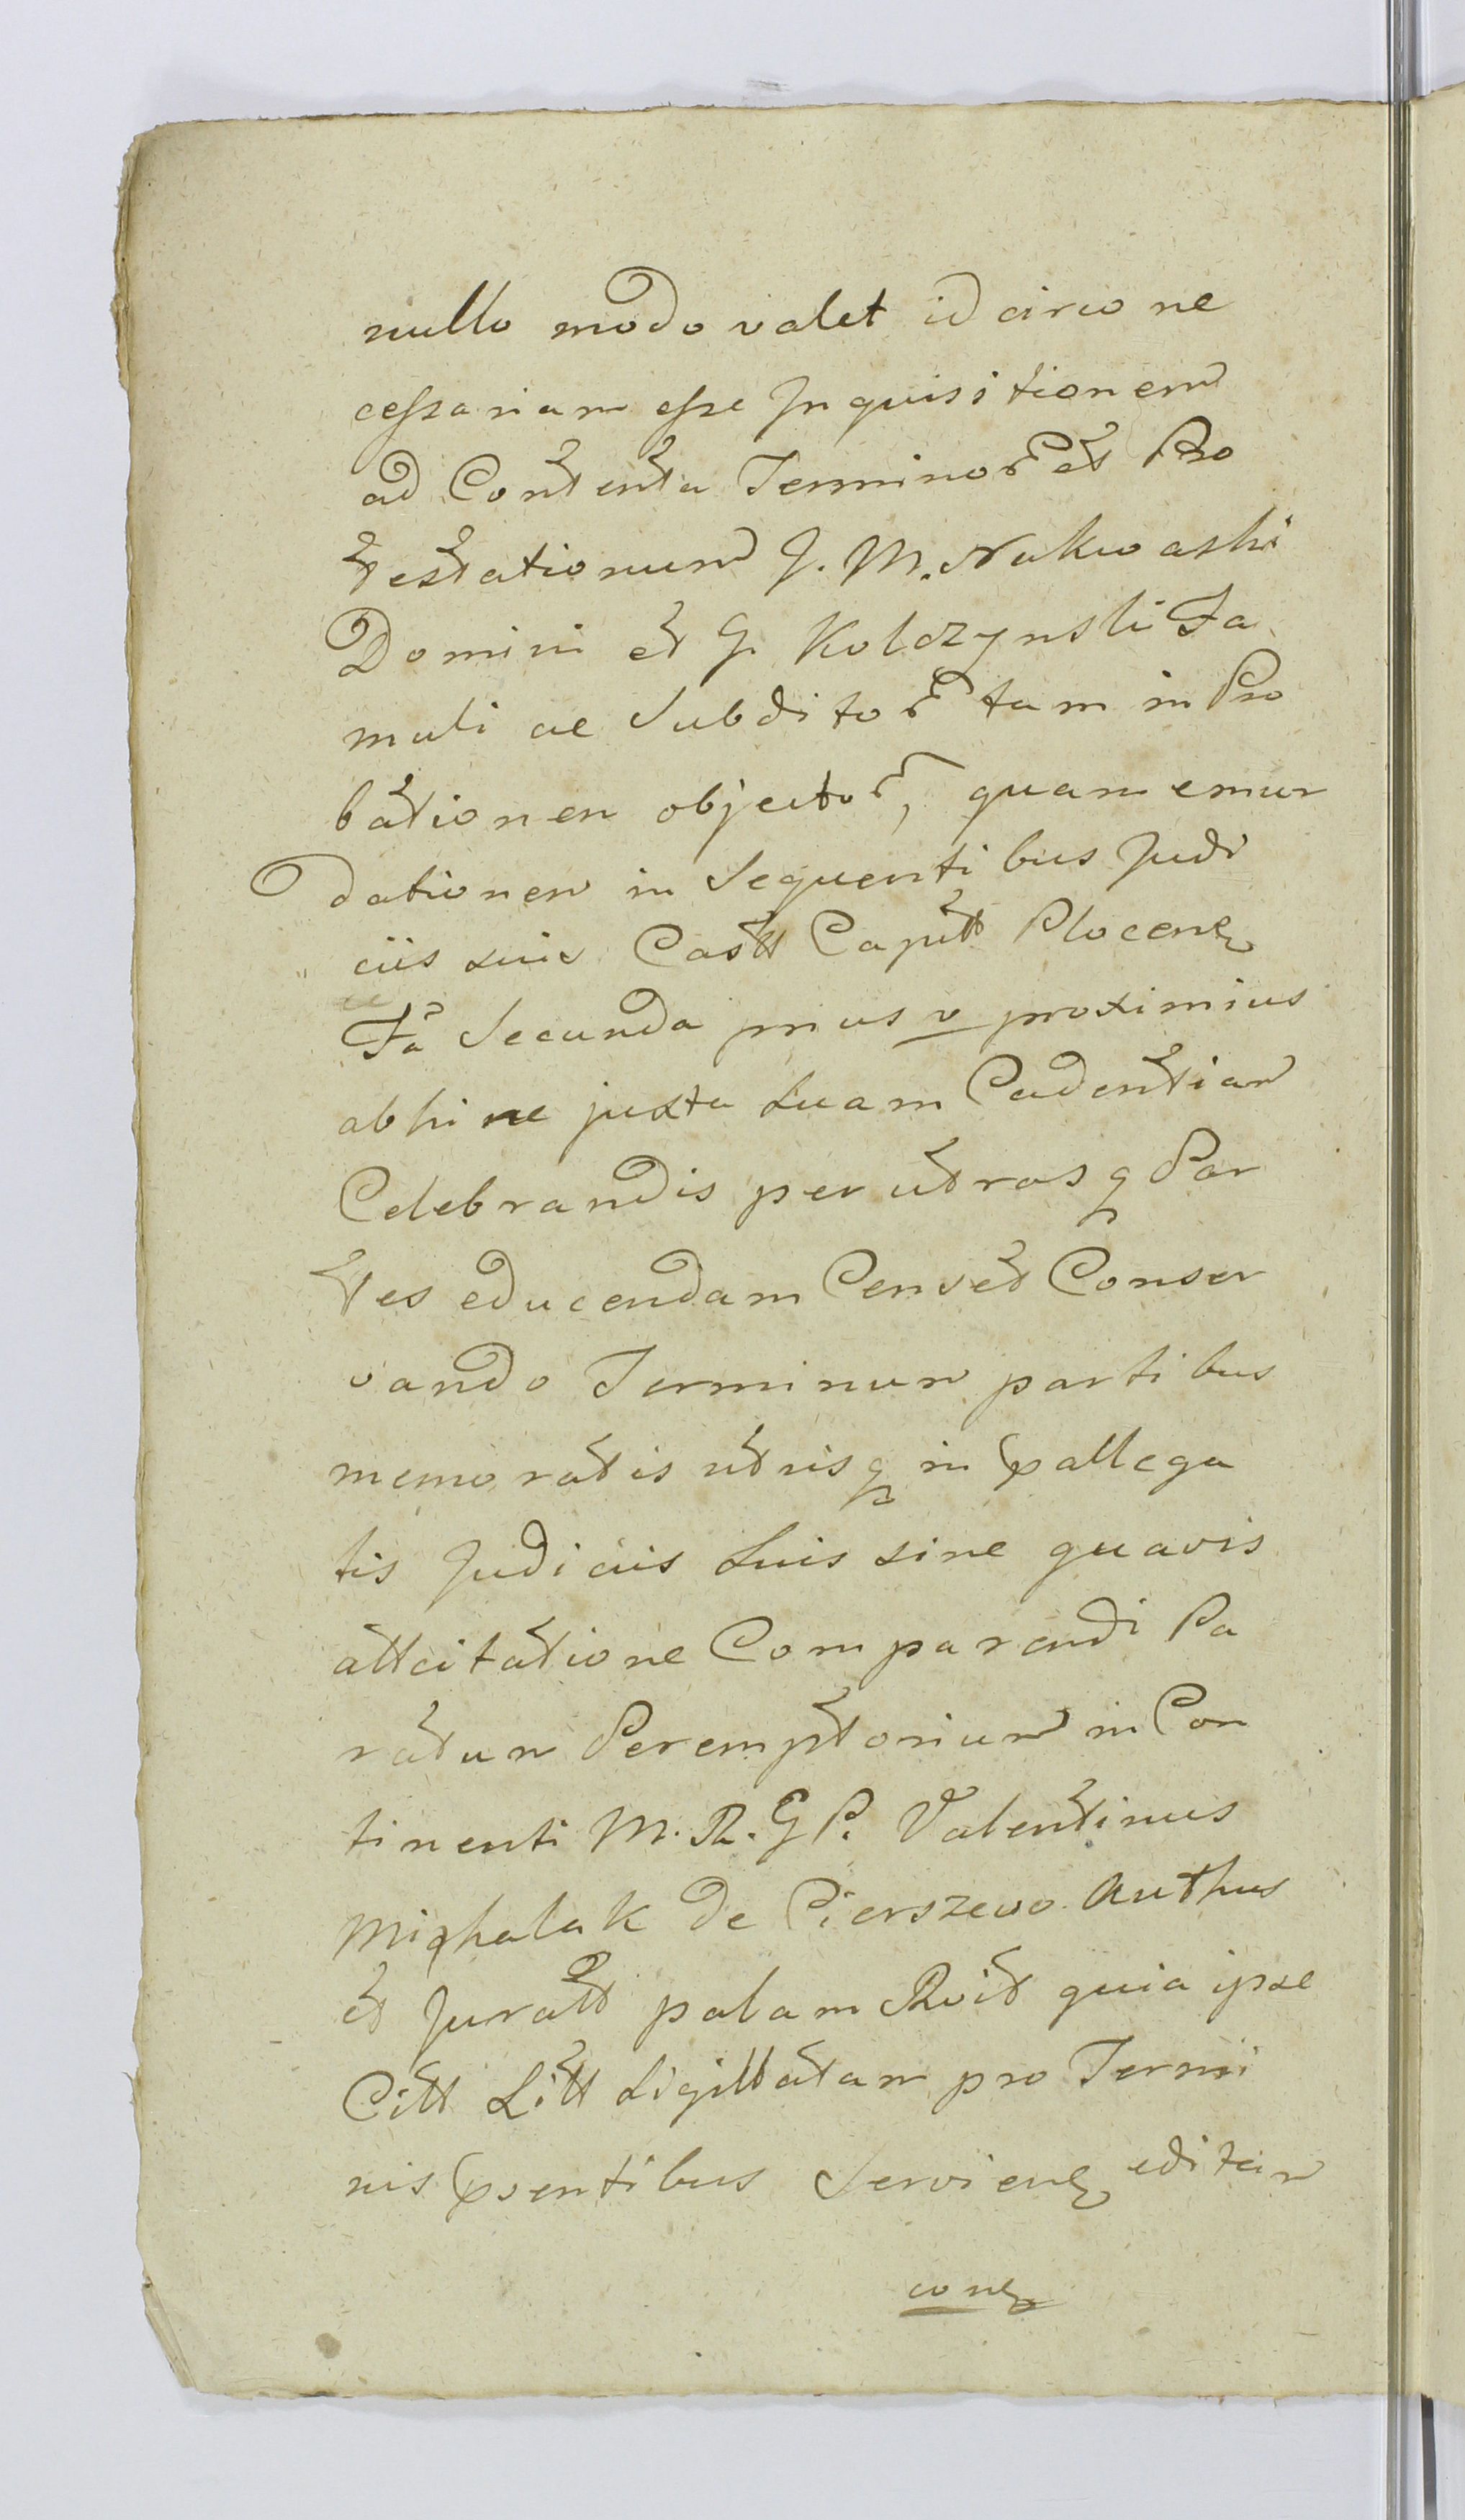 nullo modo valet idcirco ne
cessariam esse Inquisitionem
ad Contenta Terminor et Pro
testationum J. M. Nakwaski
Domini et G. Kolczynski Fa
muli ac Subditor tam in Pro
bationem objector, quam emun
dationem in Sequentibus Judi
ciis suis Castt Capitt Plocens
Fa Secunda prius v proximius
abhinc juxta suam Cadentiam
Celebrandis per utrasq Par
tes educendam Censet Conser
vando Terminum partibus
memoratis utrisq in pallega
tis Judiciis suis sine quavis
attcitatione Comparendi Pa
ratum Peremptorium in Con
tinenti M. R. G P. Valentinus
Michalak de Pierszewo Authus
et Juratt palam Rvit quia ipse
Citt Litt Sigillatam pro Termi
nis psentibus Serviens editam
cons